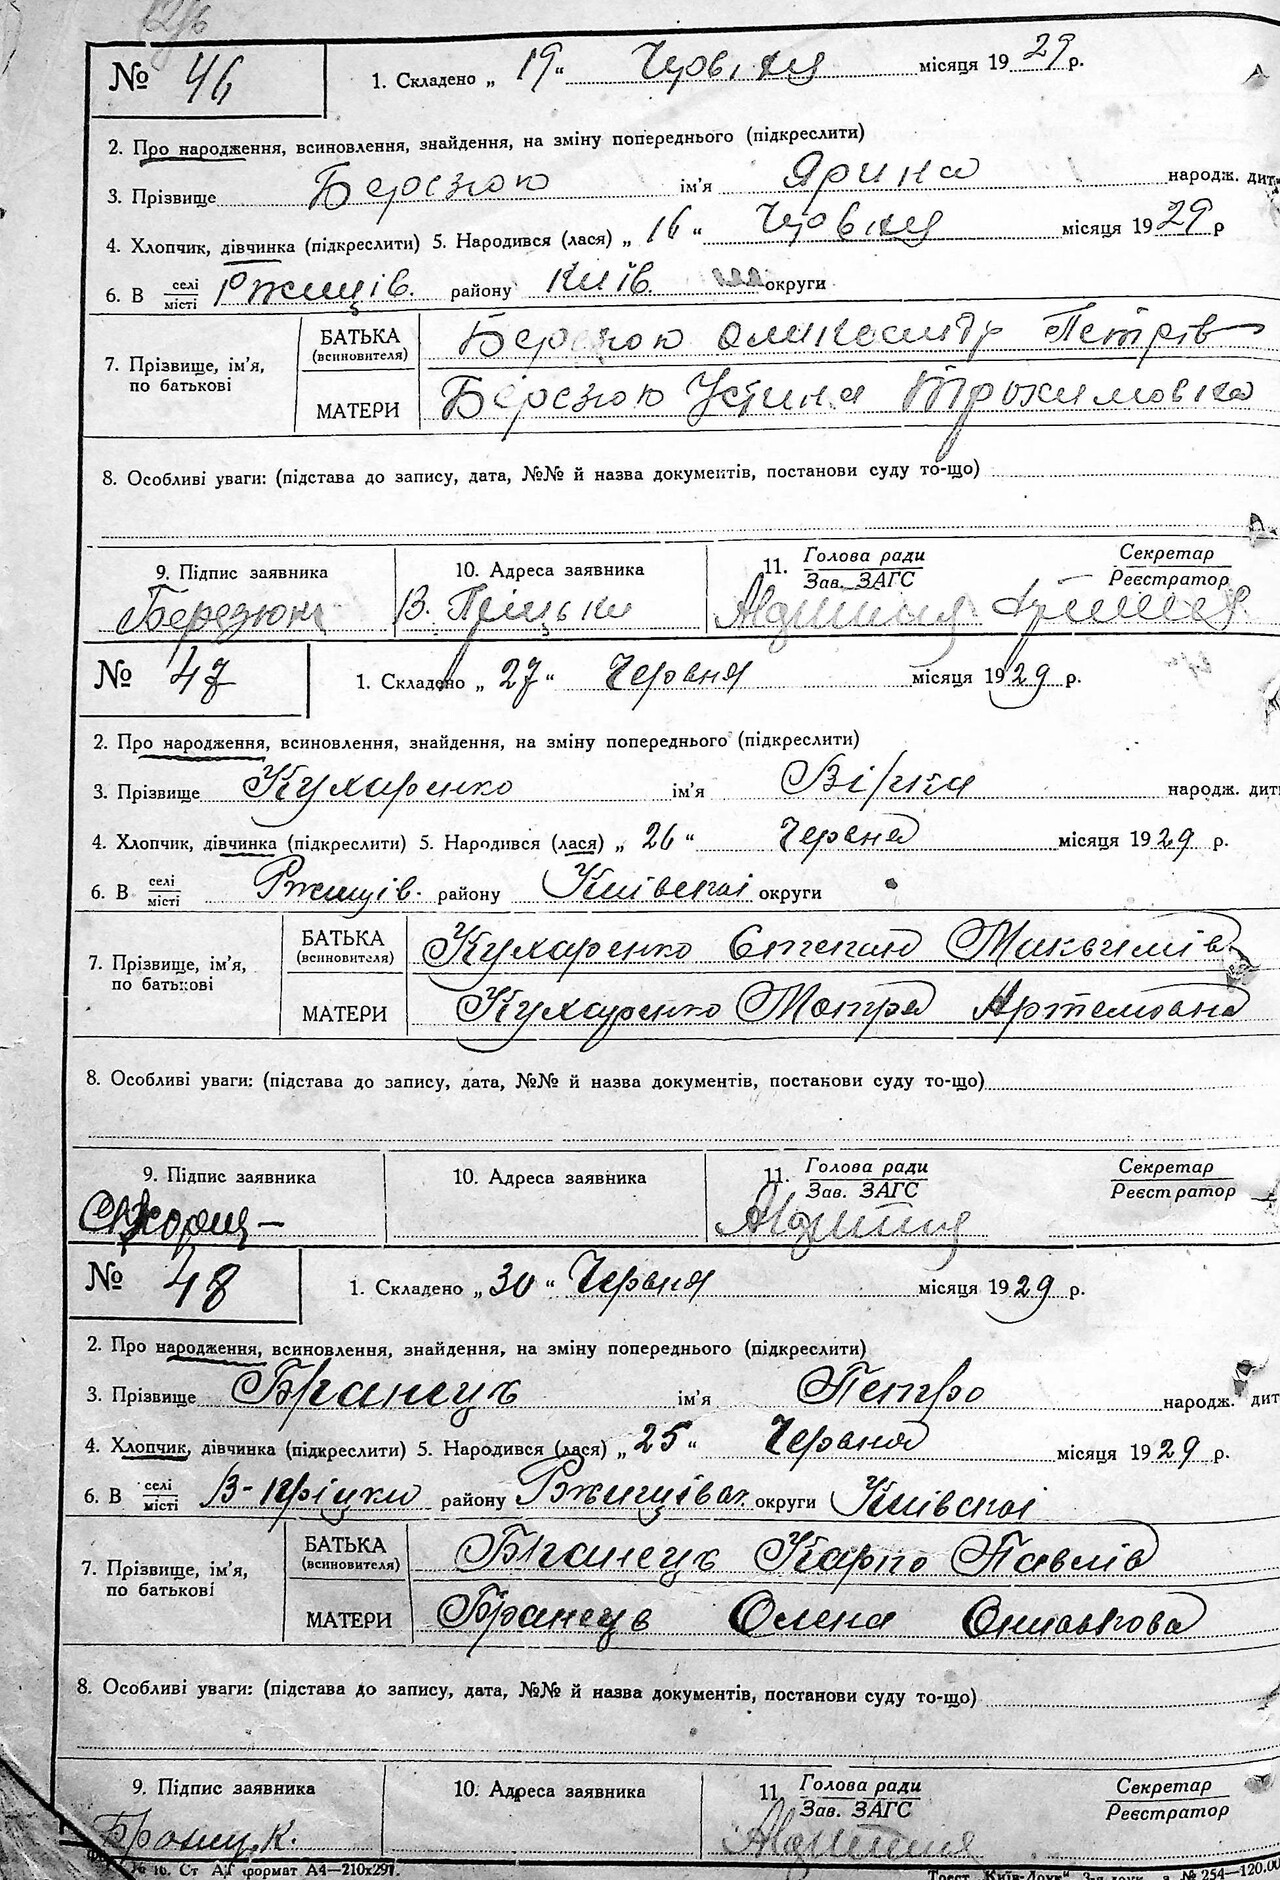 № 46
1. Складено „ 19 “ Червіня місяця 1929 р.
2. Про народження, всиновлення, знайдення, на зміну попереднього (підкреслити)
3. Прізвище Березюк ім'я Ярина народж. дит
4. Хлопчик, дівчинка (підкреслити) 5. Народився (лася) „ 16 “ місяця 1929 р
6. В селі/місті Ржищів. району Київ. округи
7. Прізвище, ім'я, по батькові
БАТЬКА (всиновителя) Березюк Олександр Петрів
МАТЕРИ Березюк Устина Трохимовна
8. Особливі уваги: (підстава до запису, дата, №№ й назва документів, постанови суду то-що)
9. Підпис заявника 10. Адреса заявника 11. Голова ради/Зав. ЗАГС Секретар/Реєстратор
Березюк В. Пріцьки
№ 47
1. Складено „ 27 “ Червня місяця 1929 р.
2. Про народження, всиновлення, знайдення, на зміну попереднього (підкреслити)
3. Прізвище Кухаренко ім'я Вірка народж. дит
4. Хлопчик, дівчинка (підкреслити) 5. Народився (лася) „ 26 “ Червня місяця 1929 р.
6. В селі/місті Ржищів. району Київскоі округи
7. Прізвище, ім'я, по батькові
БАТЬКА (всиновителя) Кухаренко Степан Максимів
МАТЕРИ Кухаренко Мотря Артемовна
8. Особливі уваги: (підстава до запису, дата, №№ й назва документів, постанови суду то-що)
9. Підпис заявника 10. Адреса заявника 11. Голова ради/Зав. ЗАГС Секретар/Реєстратор
№ 48
1. Складено „ 30 “ Червня місяця 1929 р.
2. Про народження, всиновлення, знайдення, на зміну попереднього (підкреслити)
3. Прізвище Бранець ім'я Петро народж. дит
4. Хлопчик, дівчинка (підкреслити) 5. Народився (лася) „ 25 “ Червня місяця 1929 р.
6. В селі/місті В-Пріцки району округи Київскоі
7. Прізвище, ім'я, по батькові
БАТЬКА (всиновителя) Бранець Карпо Павлів
МАТЕРИ Бранець Олена
8. Особливі уваги: (підстава до запису, дата, №№ й назва документів, постанови суду то-що)
9. Підпис заявника 10. Адреса заявника 11. Голова ради/Зав. ЗАГС Секретар/Реєстратор
№ 16. Ст АГ формат А4—210х297. Трест „Київ-Друк“ № 254—120.00